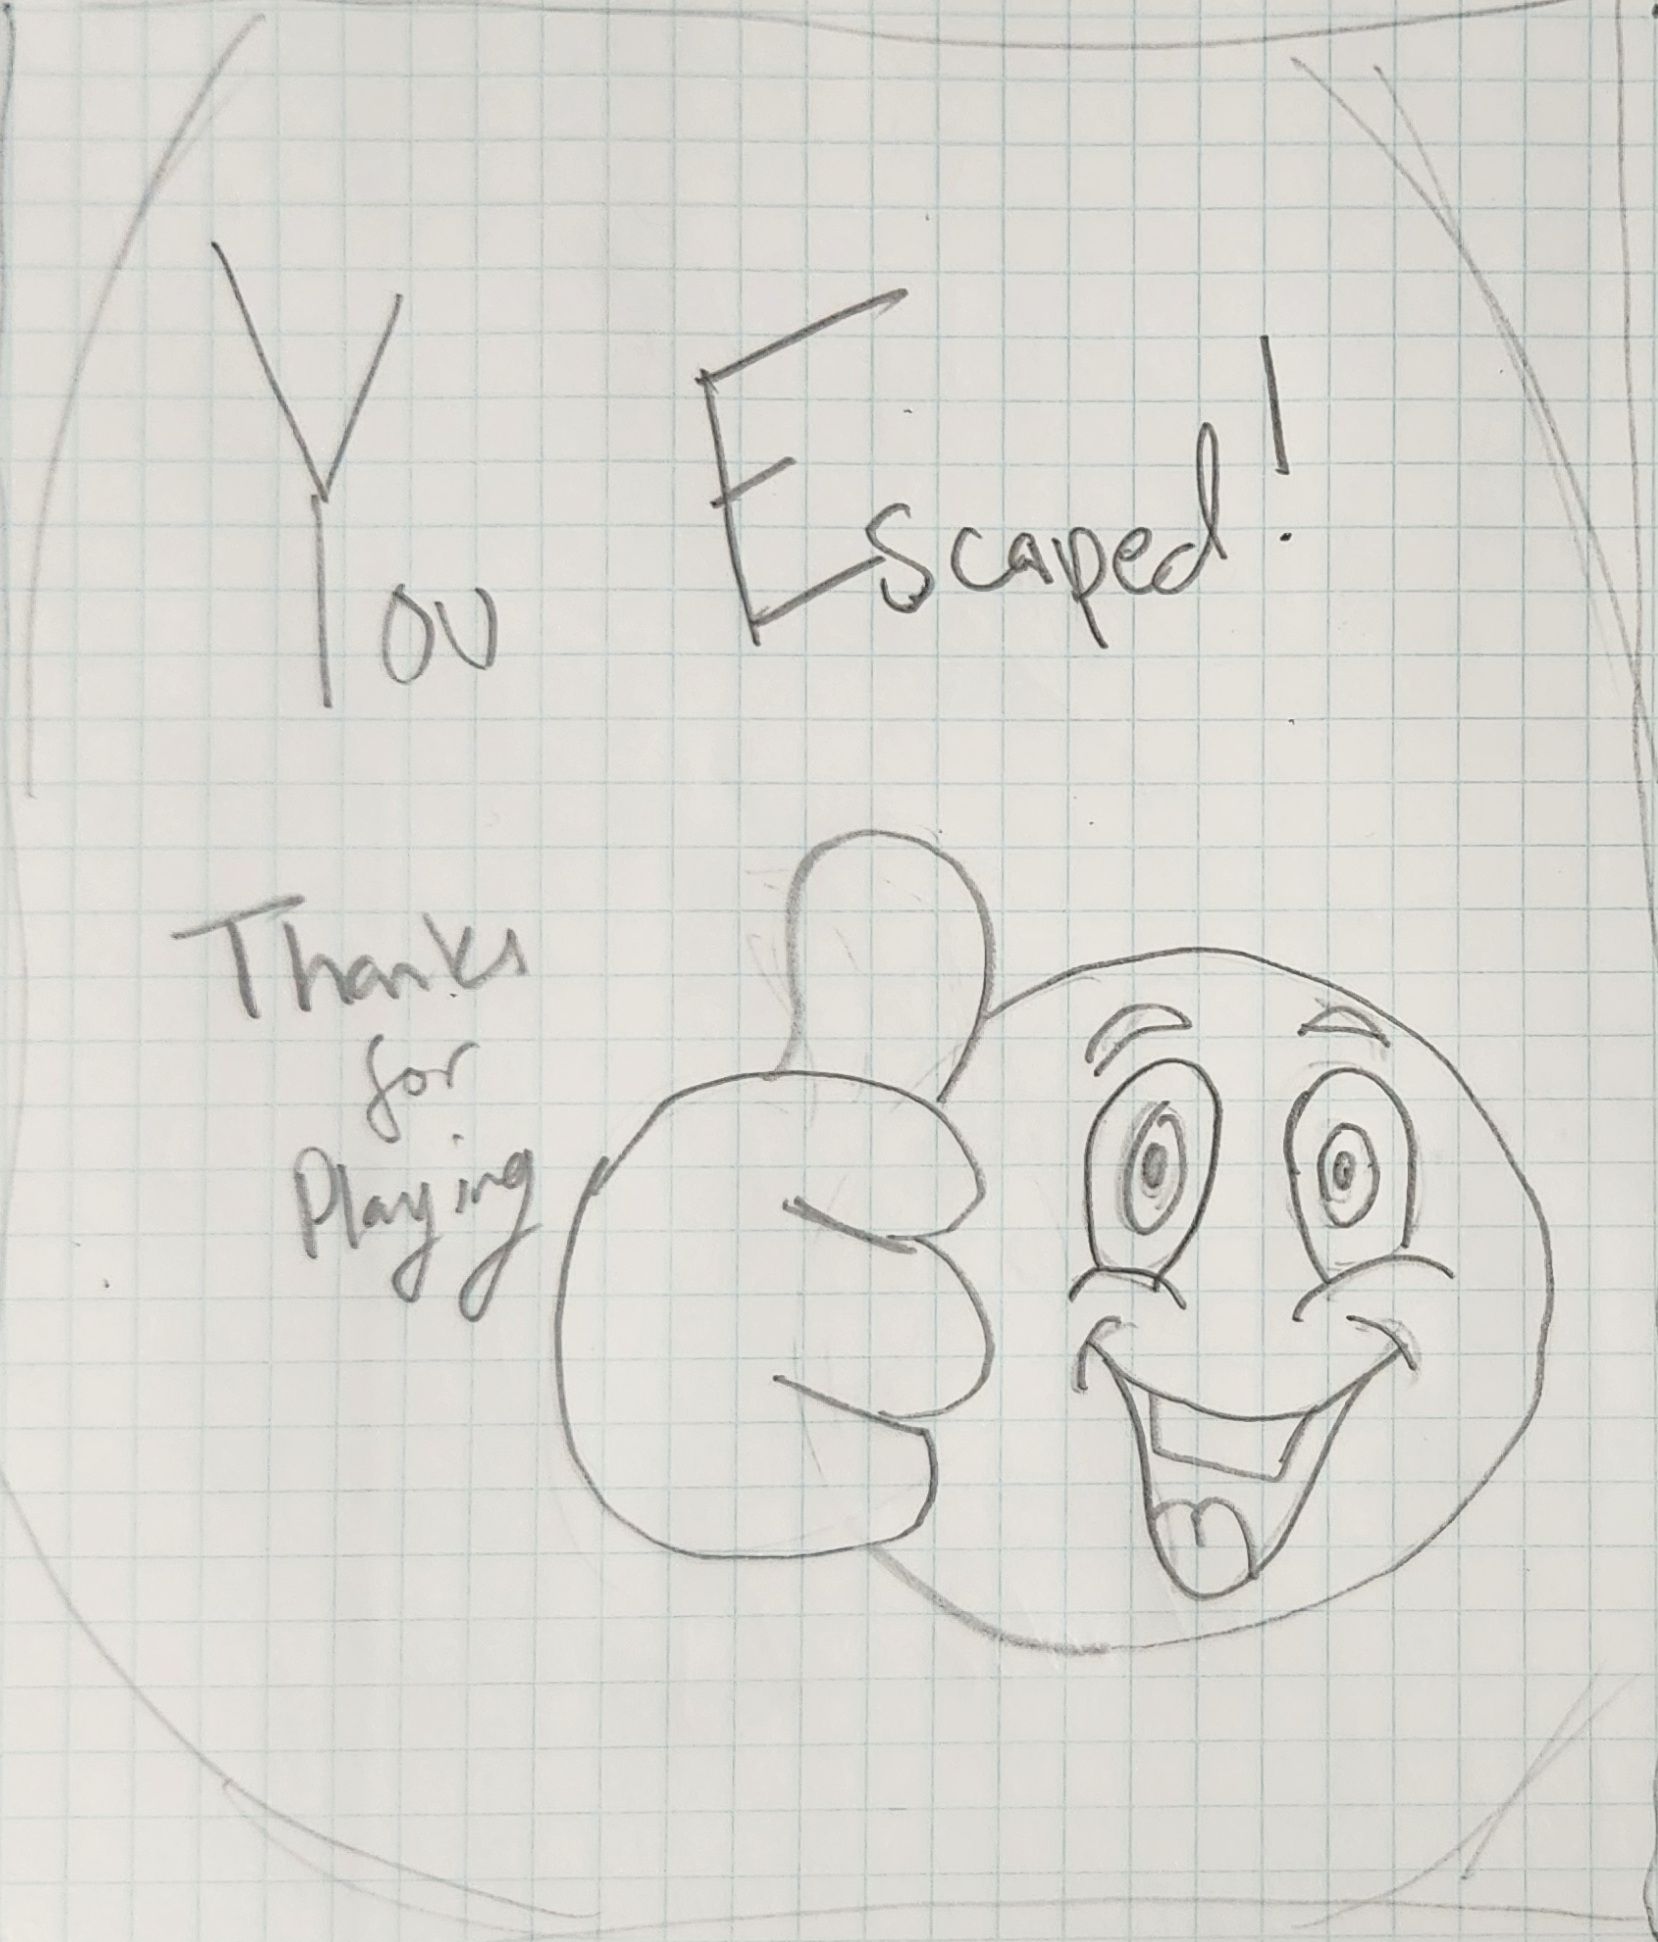 You Escaped!
Thanks
for
Playing